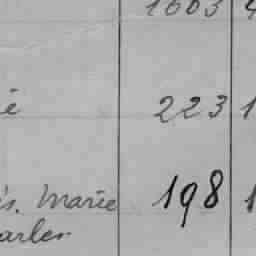 1603
223 1
is. Marie 198 1
arles